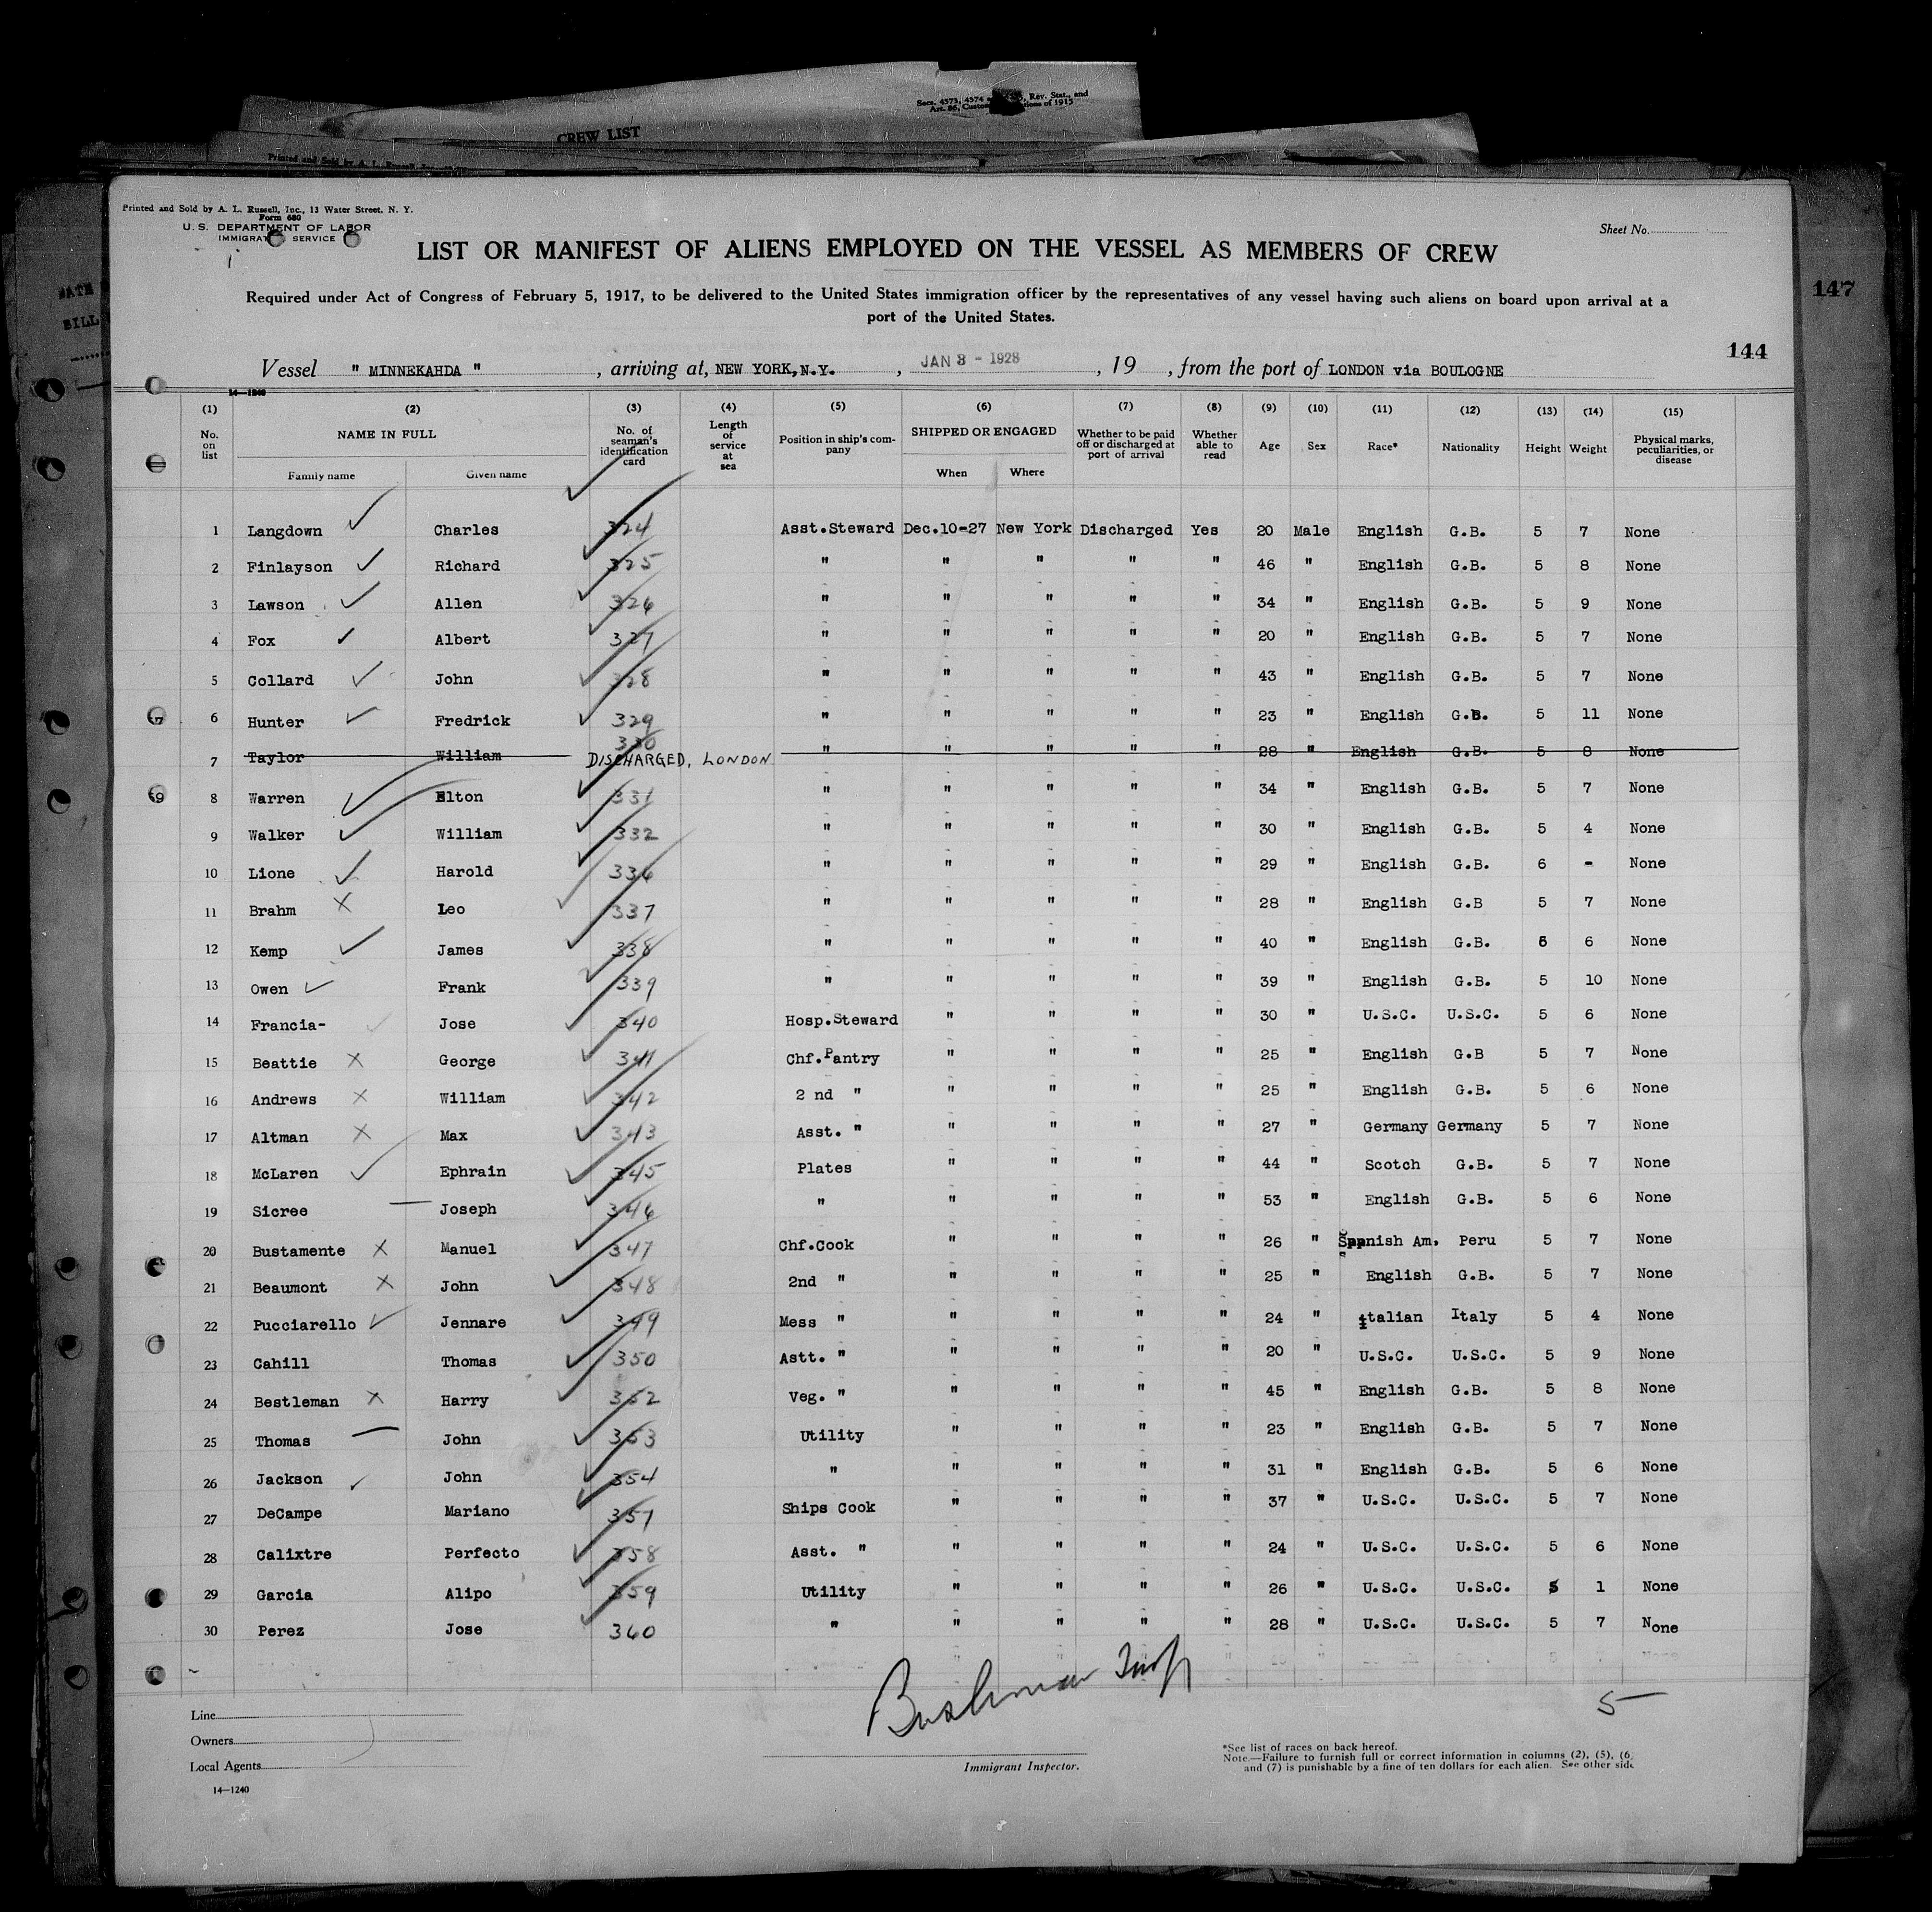 Secs. 4573, 4574 Rev. Stat., and
Art. 86, Customs of 1915
CREW LIST
Printed and Sold by A. L. Russell, Inc.
147
Printed and Sold by A. L. Russell, Inc., 13 Water Street, N. Y.
Form 680
U. S. DEPARTMENT OF LABOR
IMMIGRATION SERVICE
Sheet No.
LIST OR MANIFEST OF ALIENS EMPLOYED ON THE VESSEL AS MEMBERS OF CREW
Required under Act of Congress of February 5, 1917, to be delivered to the United States immigration officer by the representatives of any vessel having such aliens on board upon arrival at a
port of the United States.
144
Vessel " MINNEKAHDA " , arriving at, NEW YORK, N.Y. , JAN 3 - 1928 , 19 , from the port of LONDON via BOULOGNE
14—1240
(1) (2) (3) (4) (5) (6) (7) (8) (9) (10) (11) (12) (13) (14) (15)
No. on list NAME IN FULL Family name Given name No. of seaman's identification card Length of service at sea Position in ship's company SHIPPED OR ENGAGED When Where Whether to be paid off or discharged at port of arrival Whether able to read Age Sex Race* Nationality Height Weight Physical marks, peculiarities, or disease
1 Langdown Charles 324 Asst.Steward Dec.10-27 New York Discharged Yes 20 Male English G.B. 5 7 None
2 Finlayson Richard 325 " " " " " 46 " English G.B. 5 8 None
3 Lawson Allen 326 " " " " " 34 " English G.B. 5 9 None
4 Fox Albert 327 " " " " " 20 " English G.B. 5 7 None
5 Collard John 328 " " " " " 43 " English G.B. 5 7 None
6 Hunter Fredrick 329 " " " " " 23 " English G.B. 5 11 None
7 Taylor William 330 DISCHARGED, LONDON " " " " " 28 " English G.B. 5 8 None
8 Warren Elton 331 " " " " " 34 " English G.B. 5 7 None
9 Walker William 332 " " " " " 30 " English G.B. 5 4 None
10 Lione Harold 336 " " " " " 29 " English G.B. 6 - None
11 Brahm Leo 337 " " " " " 28 " English G.B 5 7 None
12 Kemp James 338 " " " " " 40 " English G.B. 5 6 None
13 Owen Frank 339 " " " " " 39 " English G.B. 5 10 None
14 Francia- Jose 340 Hosp.Steward " " " " 30 " U.S.C. U.S.C. 5 6 None
15 Beattie George 341 Chf.Pantry " " " " 25 " English G.B 5 7 None
16 Andrews William 342 2 nd " " " " " 25 " English G.B. 5 6 None
17 Altman Max 343 Asst. " " " " " 27 " Germany Germany 5 7 None
18 McLaren Ephrain 345 Plates " " " " 44 " Scotch G.B. 5 7 None
19 Sicree Joseph 346 " " " " " 53 " English G.B. 5 6 None
20 Bustamente Manuel 347 Chf.Cook " " " " 26 " Spanish Am. Peru 5 7 None
21 Beaumont John 348 2nd " " " " " 25 " English G.B. 5 7 None
22 Pucciarello Jennare 349 Mess " " " " " 24 " Italian Italy 5 4 None
23 Cahill Thomas 350 Astt. " " " " " 20 " U.S.C. U.S.C. 5 9 None
24 Bestleman Harry 352 Veg. " " " " " 45 " English G.B. 5 8 None
25 Thomas John 353 Utility " " " " 23 " English G.B. 5 7 None
26 Jackson John 354 " " " " " 31 " English G.B. 5 6 None
27 DeCampe Mariano 357 Ships Cook " " " " 37 " U.S.C. U.S.C. 5 7 None
28 Calixtre Perfecto 358 Asst. " " " " " 24 " U.S.C. U.S.C. 5 6 None
29 Garcia Alipo 359 Utility " " " " 26 " U.S.C. U.S.C. 5 1 None
30 Perez Jose 360 " " " " " 28 " U.S.C. U.S.C. 5 7 None
5
Line
Owners
Local Agents
14—1240
Immigrant Inspector.
*See list of races on back hereof.
Note.—Failure to furnish full or correct information in columns (2), (5), (6)
and (7) is punishable by a fine of ten dollars for each alien. See other side